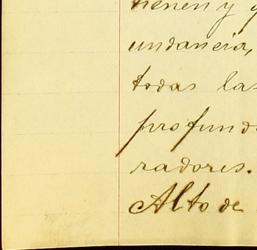 tienen y
undancia,
todas las
profund
radores.
Alto de